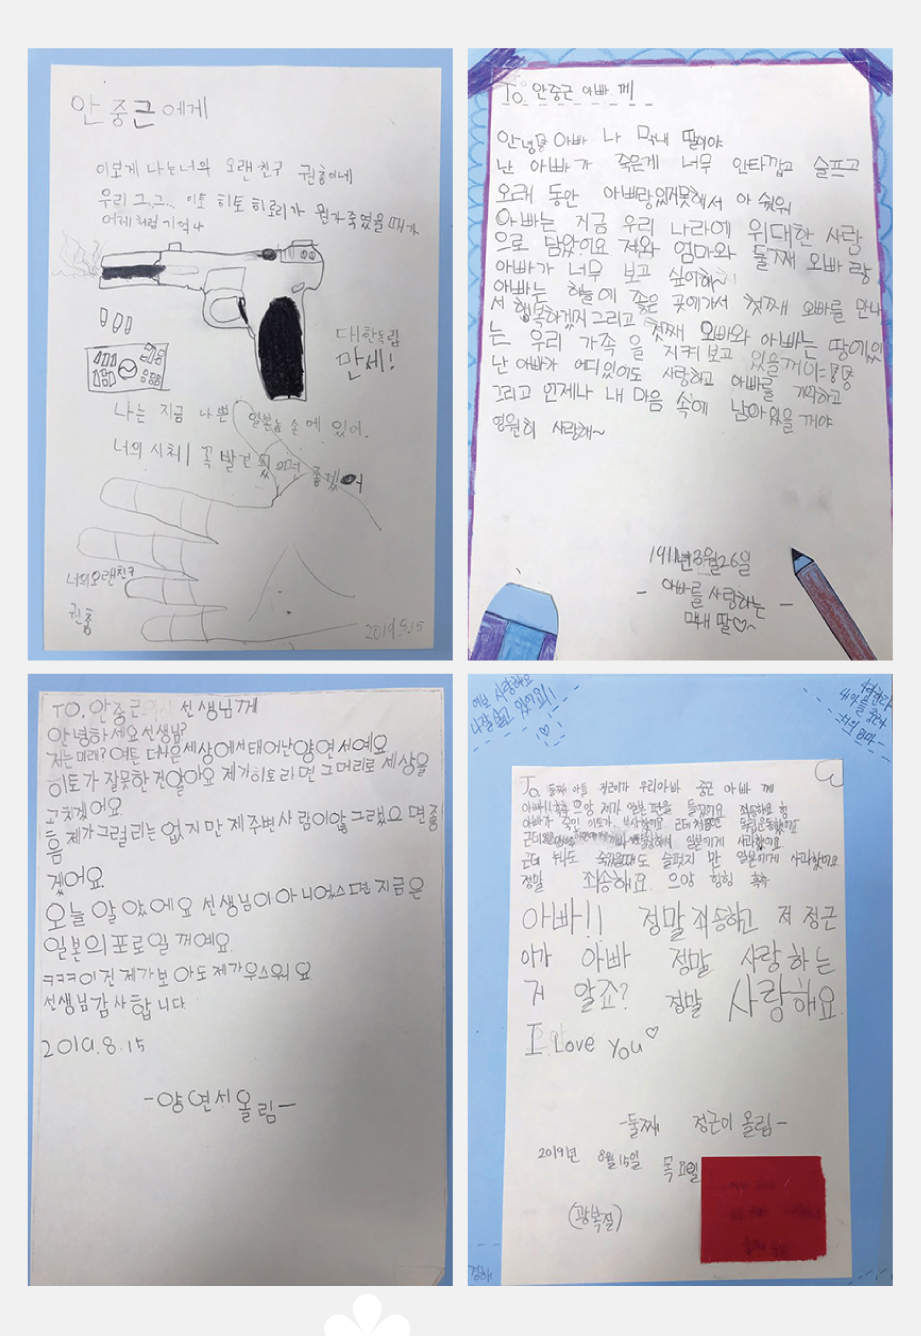 안중근에게
이보게 나는 너의 오랜 친구 권흠이네
우리 그..그... 이토 히토 히로미가 뭔가 죽였을 때가
어제처럼 기억나
대한독립
만세!
나는 지금 나쁜 일본놈 손에 있어.
너의 시체 꼭 발견 됬으면 좋겠어
너의 오랜친구
권흠
2019.8.15
To. 안중근 아빠. 께!
안녕 아빠 나 막내 딸이야
난 아빠가 죽은게 너무 안타깝고 슬프고
오래 동안 아빠랑있지못해서 아 쉬워
아빠는 지금 우리 나라에 위대한 사람
으로 남았어요 저와 엄마와 둘째 오빠 랑
아빠가 너무 보고 싶어해~
아빠는 하늘에 좋은 곳에가서 첫째 오빠를 만나
서 행복하겠지 그리고 첫째 오빠와 아빠는 땅에있
는 우리 가족 을 지켜 보고 있을꺼야
난 아빠가 어디있어도 사랑하고 아빠를 기억하고
그리고 언제나 내 마음 속에 남아있을 꺼야
영원히 사랑해~
1911년3월26일
- 아빠를 사랑하는 -
막내 딸♡~
TO. 안중근 선생님께
안녕하세요 선생님?
저는 미래? 여튼 다음세상에서 태어난 양연서예요
히토가 잘못한건알아요 제가히토라면 그머리로 세상을
고치겠어요
제가그럴리는 없지만 제주변사람이않그랬으면좋
겠어요.
오늘 알았에요 선생님이아니었스면 지금은
일본의포로일 꺼예요
ㅋㅋㅋ이건 제가보아도 제가우스워요
선생님감사합니다.
2019.8.15
-양연서올림-
여보 사랑해요
To 둘째 아들 정근이가 우리아빠 중근 아빠 께
아빠!! 흑흑 으앙 제가 일본 편을 들었어요 죄송해요 힝
일본에게 사과했어요
정말 죄송해요 으앙 힝힝 흑흑
아빠!! 정말 죄송하고 저 정근
이가 아빠 정말 사랑하는
거 알죠? 정말 사랑해요.
I Love you♡
-둘째 정근이 올림-
2019년 8월 15일 목요일
(광복절)